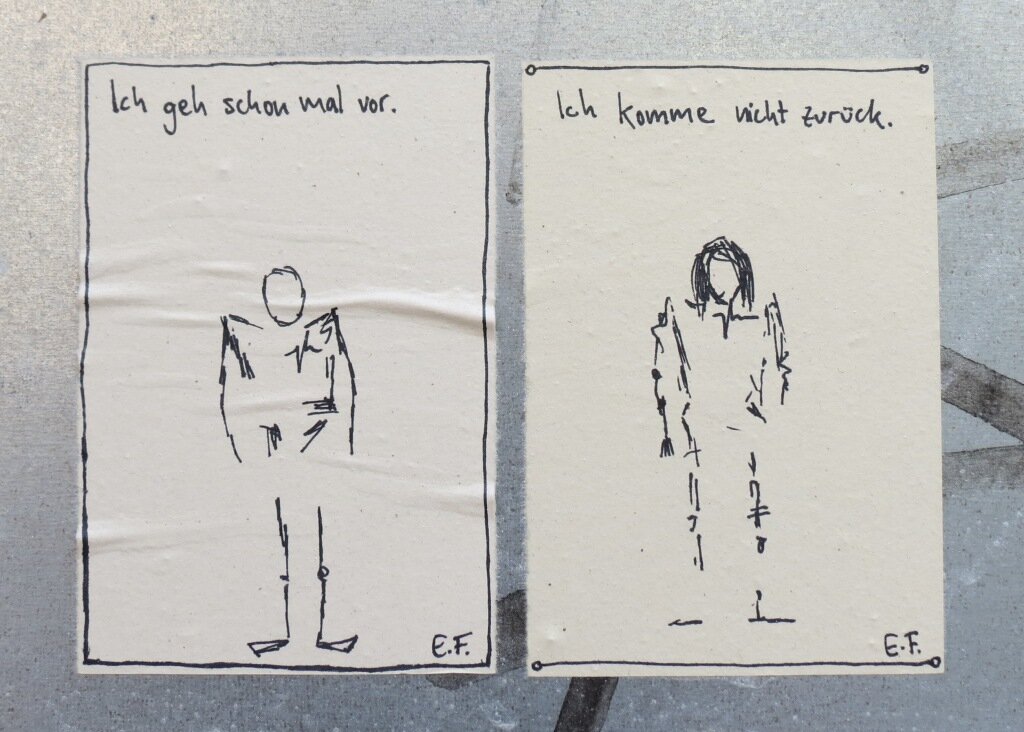 Ich geh schon mal vor.
E.F.
Ich komme nicht zurück.
E.F.